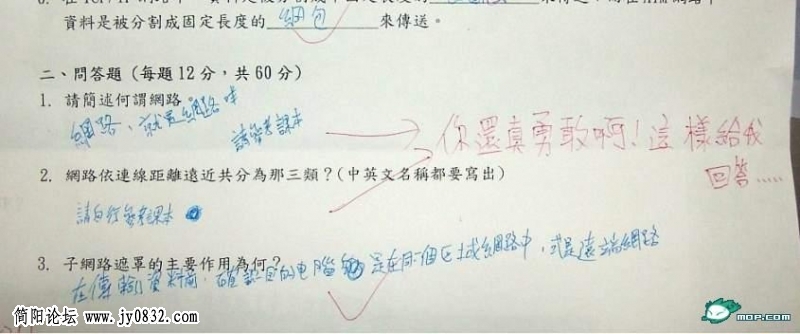 資料是被分割成固定長度的 網包 來傳送。
二、問答題（每題12分，共60分）
1. 請簡述何謂網路。
網路、就是網路
請參考課本
你還真勇敢啊！這樣給我
回答.....
2. 網路依連線距離遠近共分為那三類？(中英文名稱都要寫出)
請自行參考課本
3. 子網路遮罩的主要作用為何？
在傳輸資料前，確認目的电腦是在同個区域網路中，或是遠端網路
简阳论坛 www.jy0832.com
MOP.COM